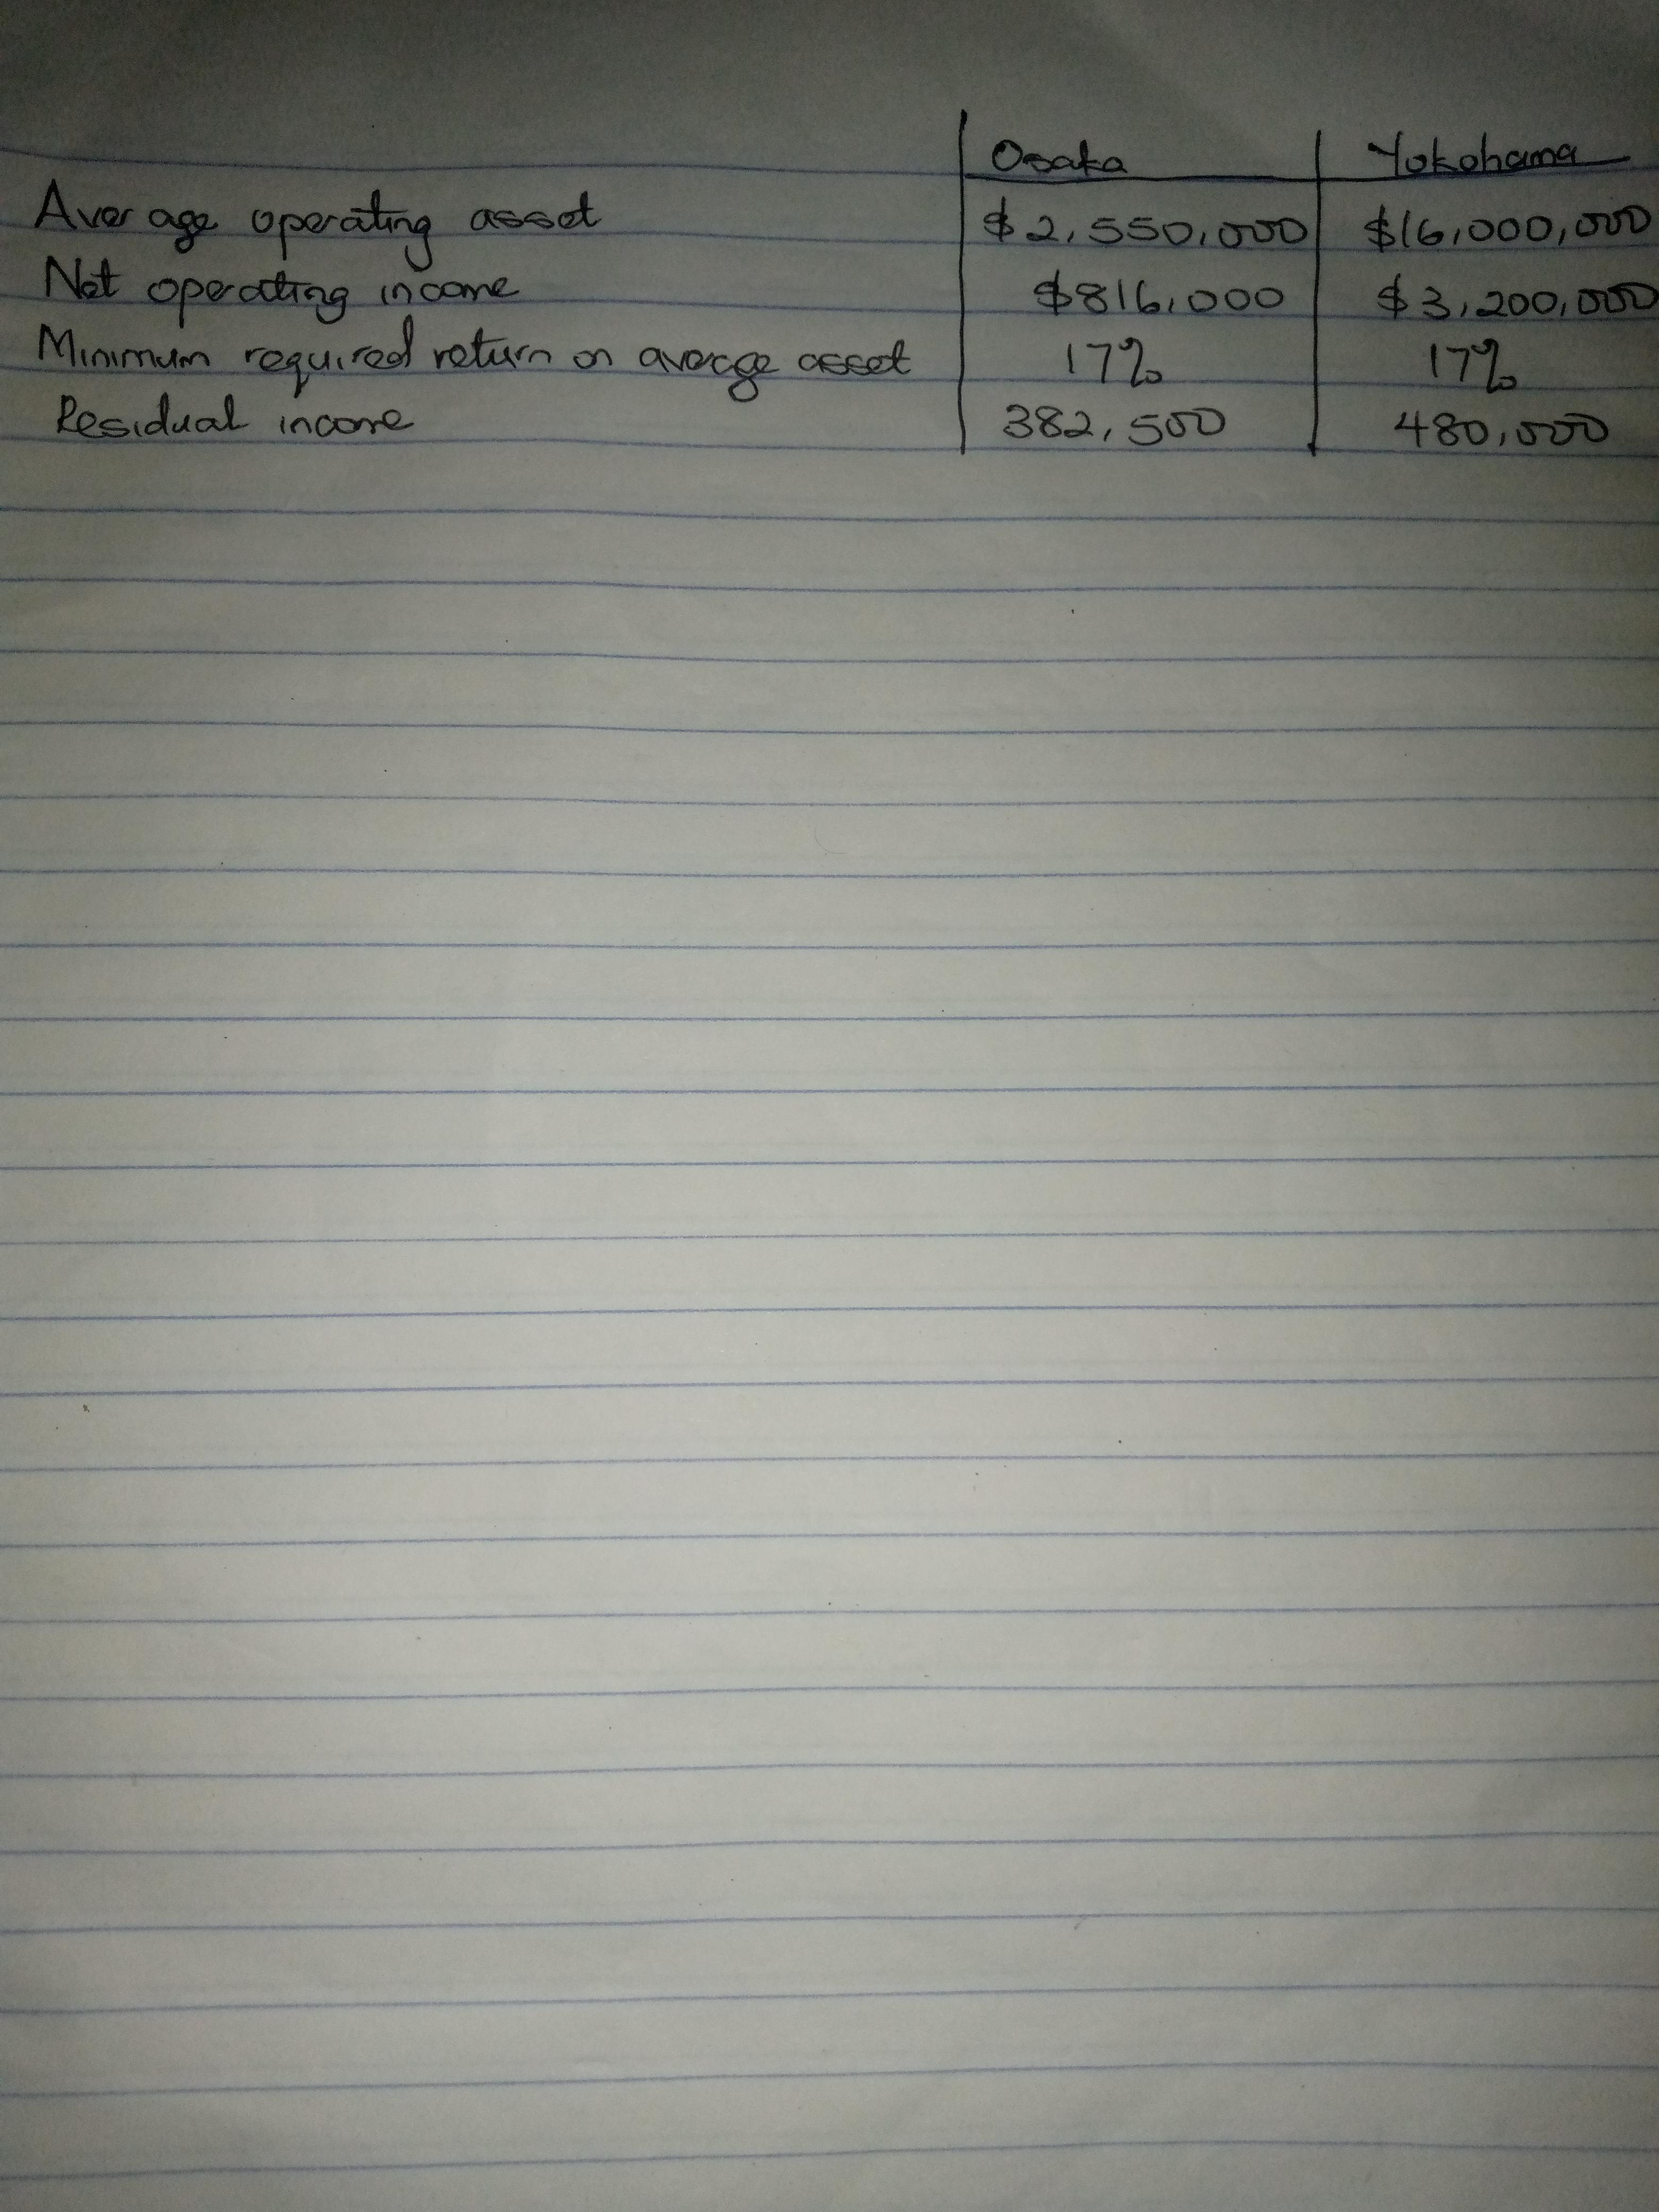 Osaka Yokohama
Average operating asset $2,550,000 $16,000,000
Net operating income $816,000 $3,200,000
Minimum required return on average asset 17% 17%
Residual income 382,500 480,000